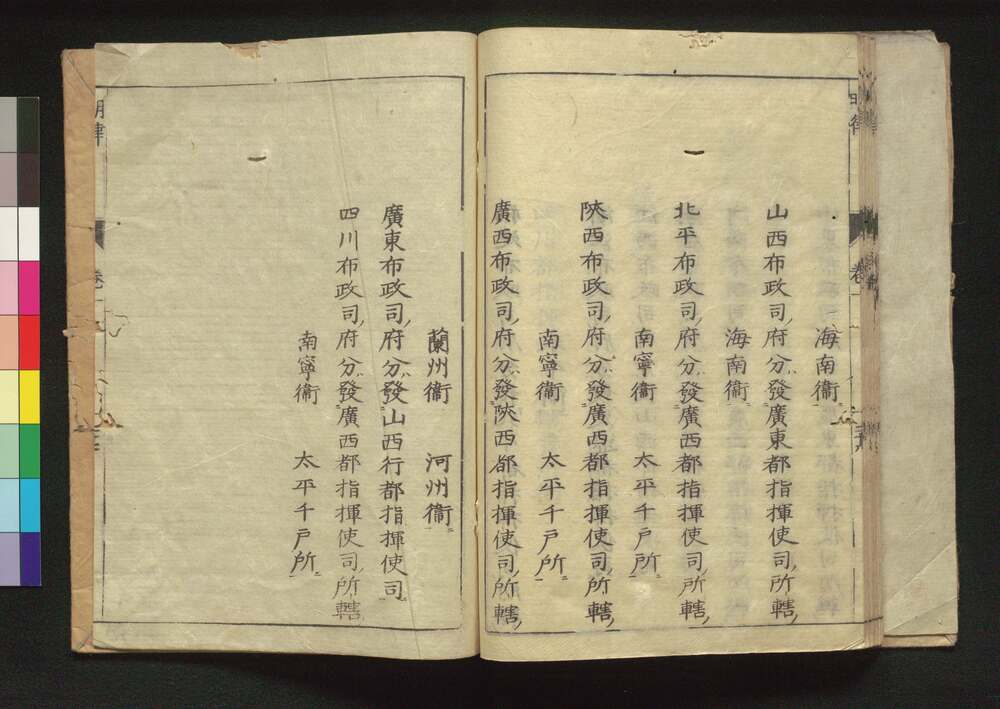 海南衞
山西布政司府分發廣東都指揮使司所轄
海南衞
北平布政司府分發廣西都指揮使司所轄
南寧衞 太平千戸所
陝西布政司府分發廣西都指揮使司所轄
南寧衞 太平千戸所
廣西布政司府分發陝西都指揮使司所轄
蘭州衞 河州衞
廣東布政司府分發山西行都指揮使司
四川布政司府分發廣西都指揮使司所轄
南寧衞 太平千戸所
明律
卷一